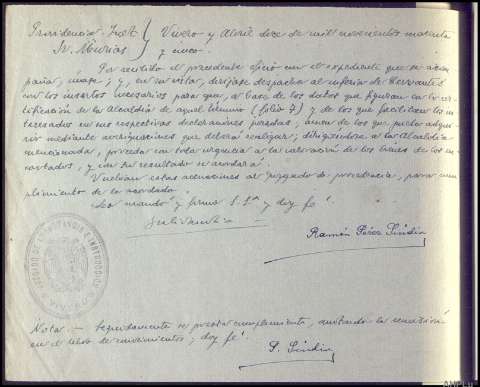 Providencia Juez
Sr. Murias
Vivero y Abril doce de mil novecientos cuarenta
y uno.
Por recibido el precedente oficio con el expediente que se acom-
paña, únase; y, en su vista, diríjase despacho al inferior de Cervantes
con los insertos necesarios para que, a base de los datos que figuran en la cer-
tificación de la Alcaldía de aquel término (folio 7) y de los que faciliten los in-
teresados en sus respectivas declaraciones prestadas, además de los que pueda adqui-
rir mediante averiguaciones que deberá realizar, dirigiéndose a la Alcaldía
mencionada, proceda con toda urgencia a la valoración de los bienes de los en-
cartados, y con su resultado se acordará.
Vuelvan estas actuaciones al Juzgado de procedencia, para cum-
plimiento de lo acordado.
Lo mandó y firma S. Sª y doy fé.
Ramón Pérez Sindín
JUZGADO DE 1ª INSTANCIA E INSTRUCCION
VIVERO
Nota: - Seguidamente se presta cumplimiento, anotando la remisión
en el libro de conocimientos; doy fé.
P. Sindín